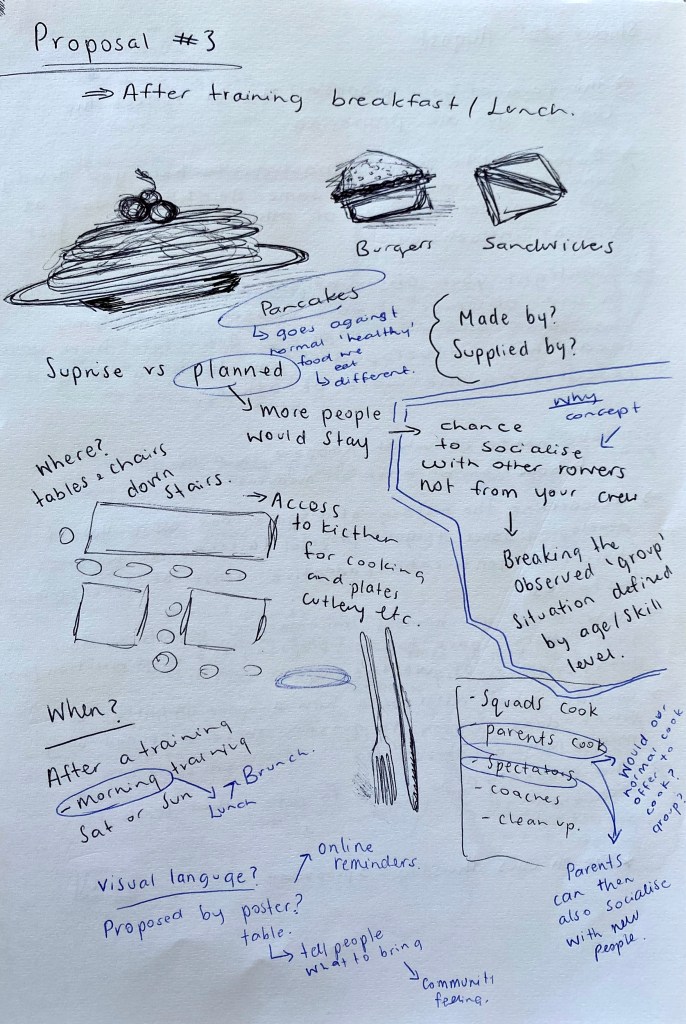 Proposal #3
⇒ After training breakfast / Lunch.
Burgers
Sandwiches
Pancakes
↳ goes against
normal 'healthy'
food we
eat
↳ different.
Made by?
Supplied by?
Suprise vs planned
↘ More people
would stay
→ chance
to socialise
with other rowers
not from your crew
why
concept
↓
Breaking the
observed 'group'
situation defined
by age/skill
level.
Where?
tables & chairs
down
stairs.
→ Access
to kicthen
for cooking
and plates
cutlery etc.
When?
After a training
- morning training
Sat or Sun
↘ Lunch
↗ Brunch.
- Squads cook
parents cook
- Spectators
- coaches
- clean up.
Would our
normal cook
offer to
cook?
group?
Parents
can then
also socialise
with new
people.
visual languge?
Proposed by poster?
table.
↗ online
reminders.
↳ tell people
what to bring
↘ community
feeling.